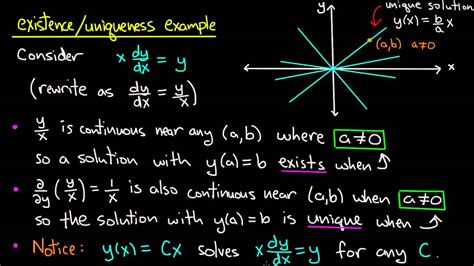 existence/uniqueness example
Consider x dy/dx = y
(rewrite as dy/dx = y/x)
y
x
unique solution
y(x) = b/a x
(a,b) a≠0
• y/x is continuous near any (a,b) where a≠0
so a solution with y(a)=b exists when
• ∂/∂y (y/x) = 1/x is also continuous near (a,b) when a≠0
so the solution with y(a)=b is unique when
• Notice: y(x) = Cx solves x dy/dx = y for any C.